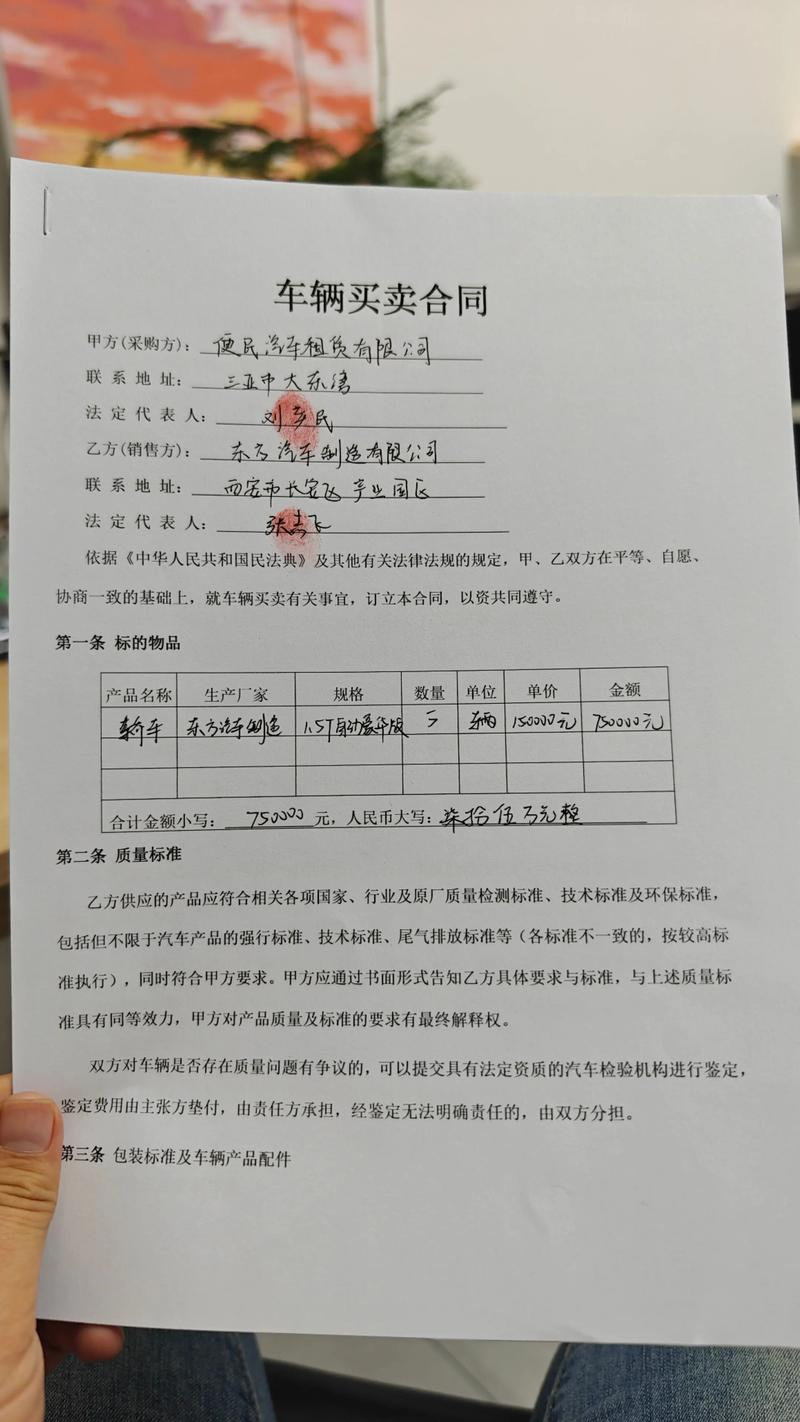 车辆买卖合同
甲方(采购方): 便民汽车租赁有限公司
联系地址: 三亚市大东湾
法定代表人: 刘 民
乙方(销售方): 东方汽车制造有限公司
联系地址: 西安市长安区产业园区
法定代表人: 张 飞
依据《中华人民共和国民法典》及其他有关法律法规的规定,甲、乙双方在平等、自愿、
协商一致的基础上,就车辆买卖有关事宜,订立本合同,以资共同遵守。
第一条 标的物品
产品名称 生产厂家 规格 数量 单位 单价 金额
轿车 东方汽车制造 1.5T自动豪华版 5 辆 150000元 750000元
合计金额小写: 750000 元,人民币大写: 柒拾伍万元整
第二条 质量标准
乙方供应的产品应符合相关各项国家、行业及原厂质量检测标准、技术标准及环保标准,
包括但不限于汽车产品的强行标准、技术标准、尾气排放标准等(各标准不一致的,按较高标
准执行),同时符合甲方要求。甲方应通过书面形式告知乙方具体要求与标准,与上述质量标
准具有同等效力,甲方对产品质量及标准的要求有最终解释权。
双方对车辆是否存在质量问题有争议的,可以提交具有法定资质的汽车检验机构进行鉴定,
鉴定费用由主张方垫付,由责任方承担,经鉴定无法明确责任的,由双方分担。
第三条 包装标准及车辆产品配件